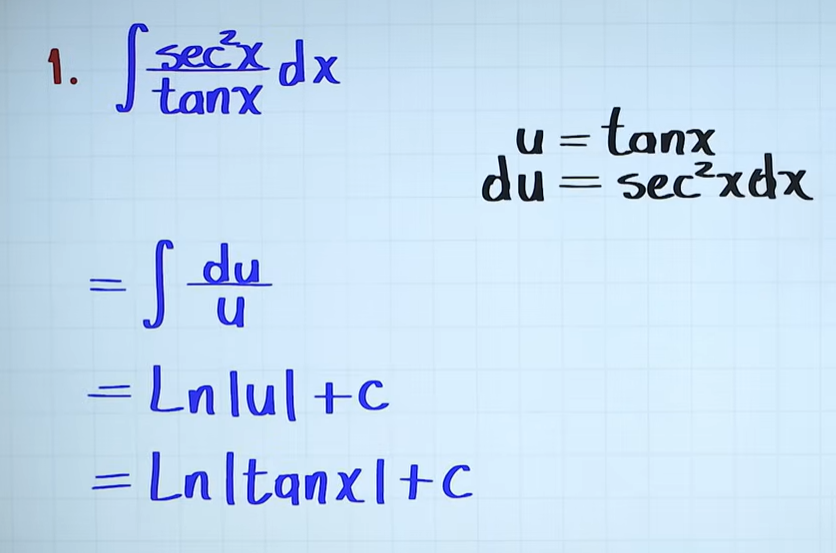 1. ∫ sec²x/tanx dx
u = tanx
du = sec²xdx
= ∫ du/u
= Ln|u| + c
= Ln|tanx| + c